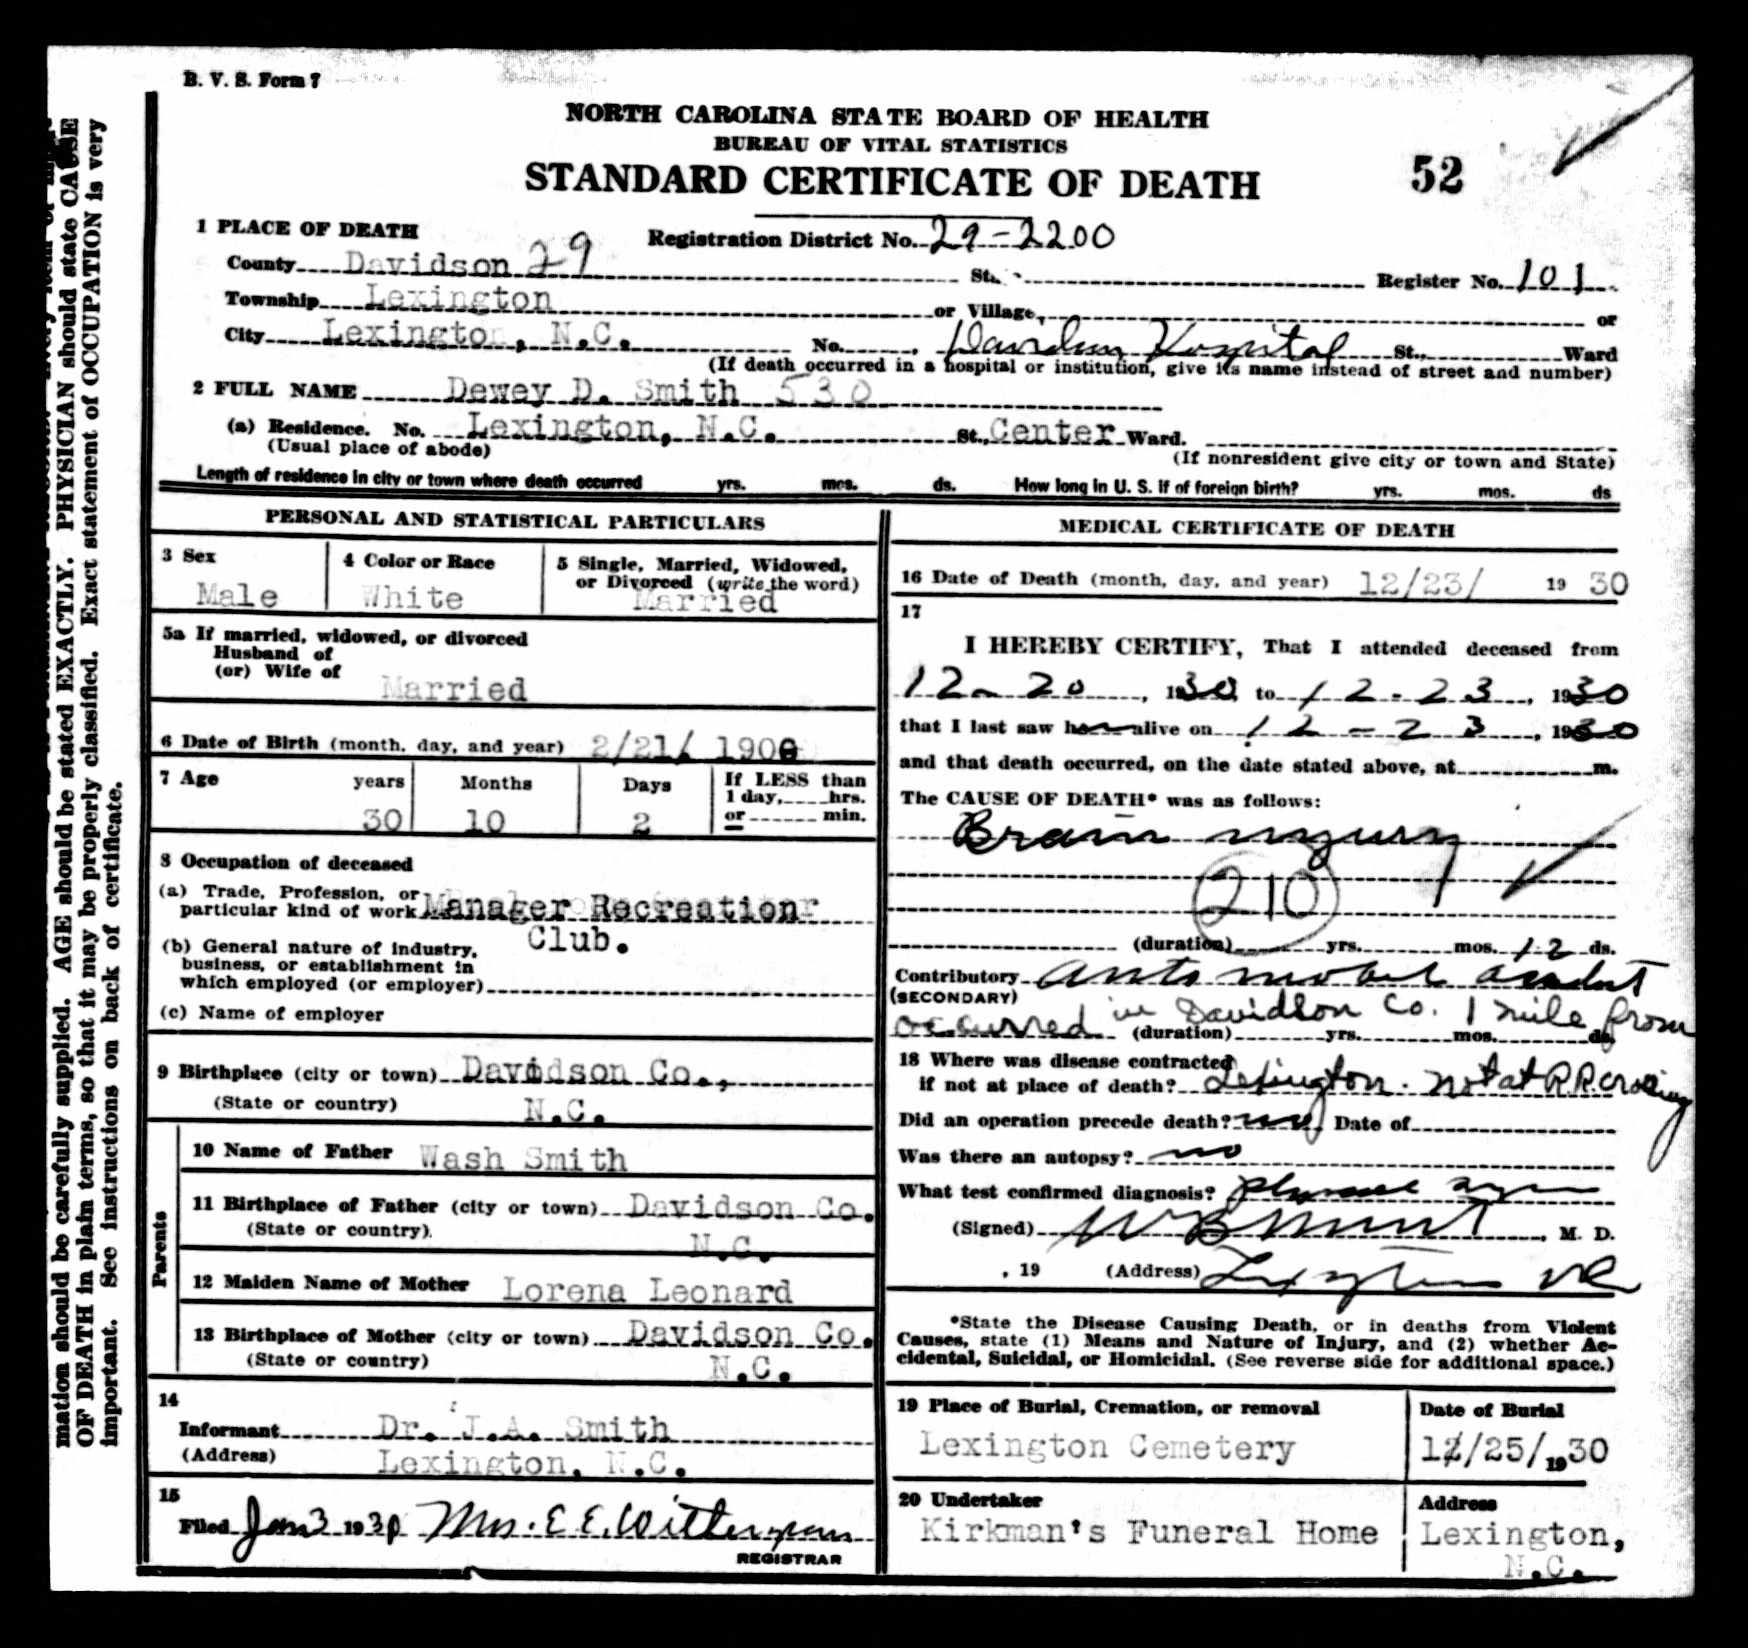 B. V. S. Form 7
NORTH CAROLINA STATE BOARD OF HEALTH
BUREAU OF VITAL STATISTICS
STANDARD CERTIFICATE OF DEATH
52
1 PLACE OF DEATH
Registration District No. 29-2200
County Davidson 29 St. Register No. 101
Township Lexington or Village or
City Lexington, N.C. No. Davidson Hospital St., Ward
(If death occurred in a hospital or institution, give its name instead of street and number)
2 FULL NAME Dewey D. Smith 530
(a) Residence. No. Lexington, N.C. St., Center Ward.
(Usual place of abode) (If nonresident give city or town and State)
Length of residence in city or town where death occurred yrs. mos. ds. How long in U. S. if of foreign birth? yrs. mos. ds
PERSONAL AND STATISTICAL PARTICULARS
3 Sex
Male
4 Color or Race
White
5 Single, Married, Widowed,
or Divorced (write the word)
Married
5a If married, widowed, or divorced
Husband of
(or) Wife of
Married
6 Date of Birth (month, day, and year) 2/21/ 1900
7 Age years Months Days If LESS than
1 day, hrs.
30 10 2 or min.
8 Occupation of deceased
(a) Trade, Profession, or
particular kind of work Manager Recreation
Club.
(b) General nature of industry,
business, or establishment in
which employed (or employer)
(c) Name of employer
9 Birthplace (city or town) Davidson Co.,
(State or country) N.C.
Parents
10 Name of Father Wash Smith
11 Birthplace of Father (city or town) Davidson Co.
(State or country) N.C.
12 Maiden Name of Mother Lorena Leonard
13 Birthplace of Mother (city or town) Davidson Co.
(State or country) N.C.
14
Informant Dr. J.A. Smith
(Address) Lexington, N.C.
15
Filed Jan 3 193 Mrs. E. E. Witherspoon
REGISTRAR
MEDICAL CERTIFICATE OF DEATH
16 Date of Death (month, day, and year) 12/23/ 19 30
17
I HEREBY CERTIFY, That I attended deceased from
12-20, 1930, to 12-23, 1930
that I last saw h alive on 12-23, 1930
and that death occurred, on the date stated above, at m.
The CAUSE OF DEATH* was as follows:
Brain injury
210
(duration) yrs. mos. 12 ds.
Contributory Automobile accident
(SECONDARY)
occurred in Davidson Co. 1 mile from
(duration) yrs. mos. ds.
18 Where was disease contracted
if not at place of death? Lexington. not at R.R. crossing
Did an operation precede death? no Date of
Was there an autopsy? no
What test confirmed diagnosis? physical signs
(Signed) W B Hunt, M. D.
, 19 (Address) Lexington NC
*State the Disease Causing Death, or in deaths from Violent
Causes, state (1) Means and Nature of Injury, and (2) whether Ac-
cidental, Suicidal, or Homicidal. (See reverse side for additional space.)
19 Place of Burial, Cremation, or removal
Lexington Cemetery
Date of Burial
12/25/1930
20 Undertaker
Kirkman's Funeral Home
Address
Lexington,
N.C.
mation should be carefully supplied. AGE should be stated EXACTLY. PHYSICIAN should state CAUSE
OF DEATH in plain terms, so that it may be properly classified. Exact statement of OCCUPATION is very
important. See instructions on back of certificate.